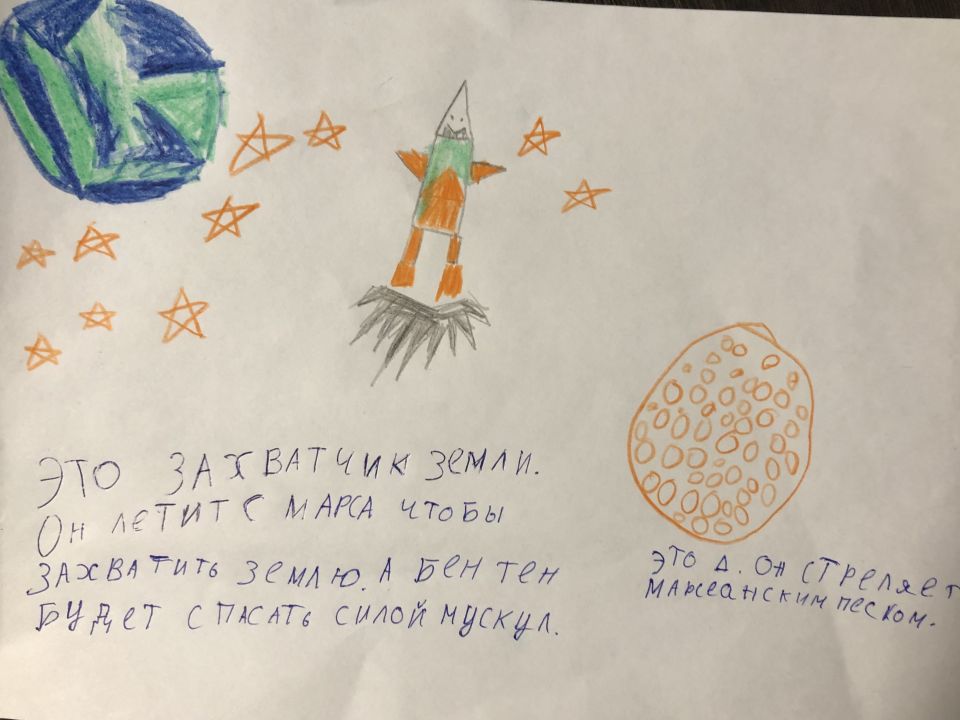 ЭТО ЗАХВАТЧИК ЗЕМЛИ.
ОН ЛЕТИТ С МАРСА ЧТОБЫ
ЗАХВАТИТЬ ЗЕМЛЮ. А БЕН ТЕН
БУДЕТ СПАСАТЬ СИЛОЙ МУСКУЛ.
ЭТО Д. ОН СТРЕЛЯЕТ
МАРСЕАНСКИМ ПЕСКОМ.